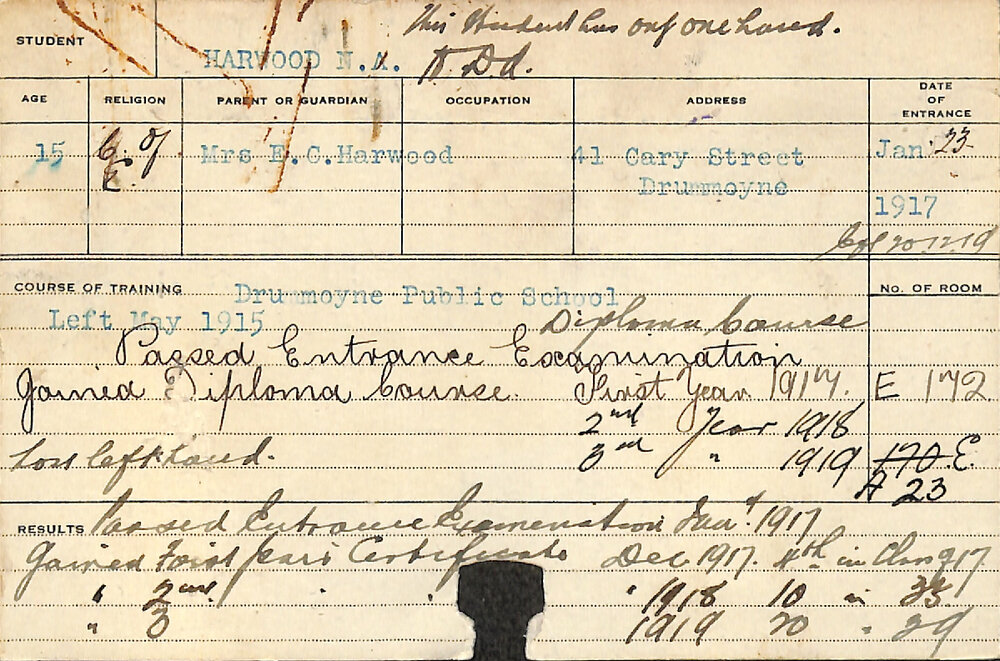 This Student has only one hand.
STUDENT
HARWOOD N.A. Dd.
AGE RELIGION PARENT OR GUARDIAN OCCUPATION ADDRESS DATE OF ENTRANCE
15 C. of E. Mrs E.C.Harwood 41 Cary Street Jan. 23
Drummoyne
1917
20.12.19
COURSE OF TRAINING Drummoyne Public School No. OF ROOM
Left May 1915 Diploma Course
Passed Entrance Examination
Joined Diploma Course. First Year 1917. E 172
2nd Year 1918
Loss left hand. 3rd " 1919 170 E.
A 23
RESULTS Passed Entrance Examination Jany. 1917
Gained First Years Certificate Dec 1917. 4th in Class 17
" 2nd " " " 1918 10 in 33
" 3 1919 20 " 29